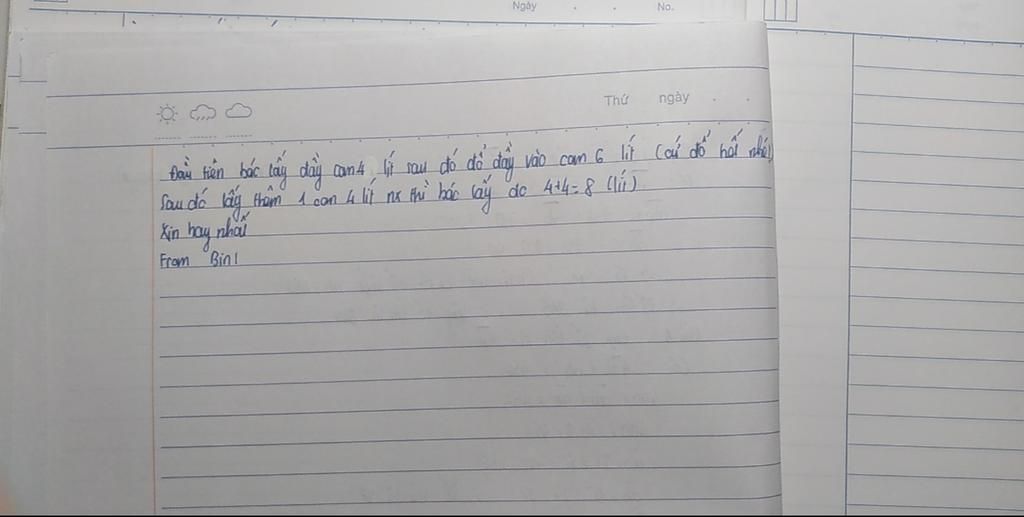 Ngày . . No.
Thứ ngày . .
Đầu tiên bác lấy đầy can 4 lít sau đó đổ đầy vào can 6 lít (cứ đổ hết nhé)
Sau đó lấy thêm 1 can 4 lít nx thì bác lấy dc 4+4=8 (lít)
Xin hay nhất
From Bin!